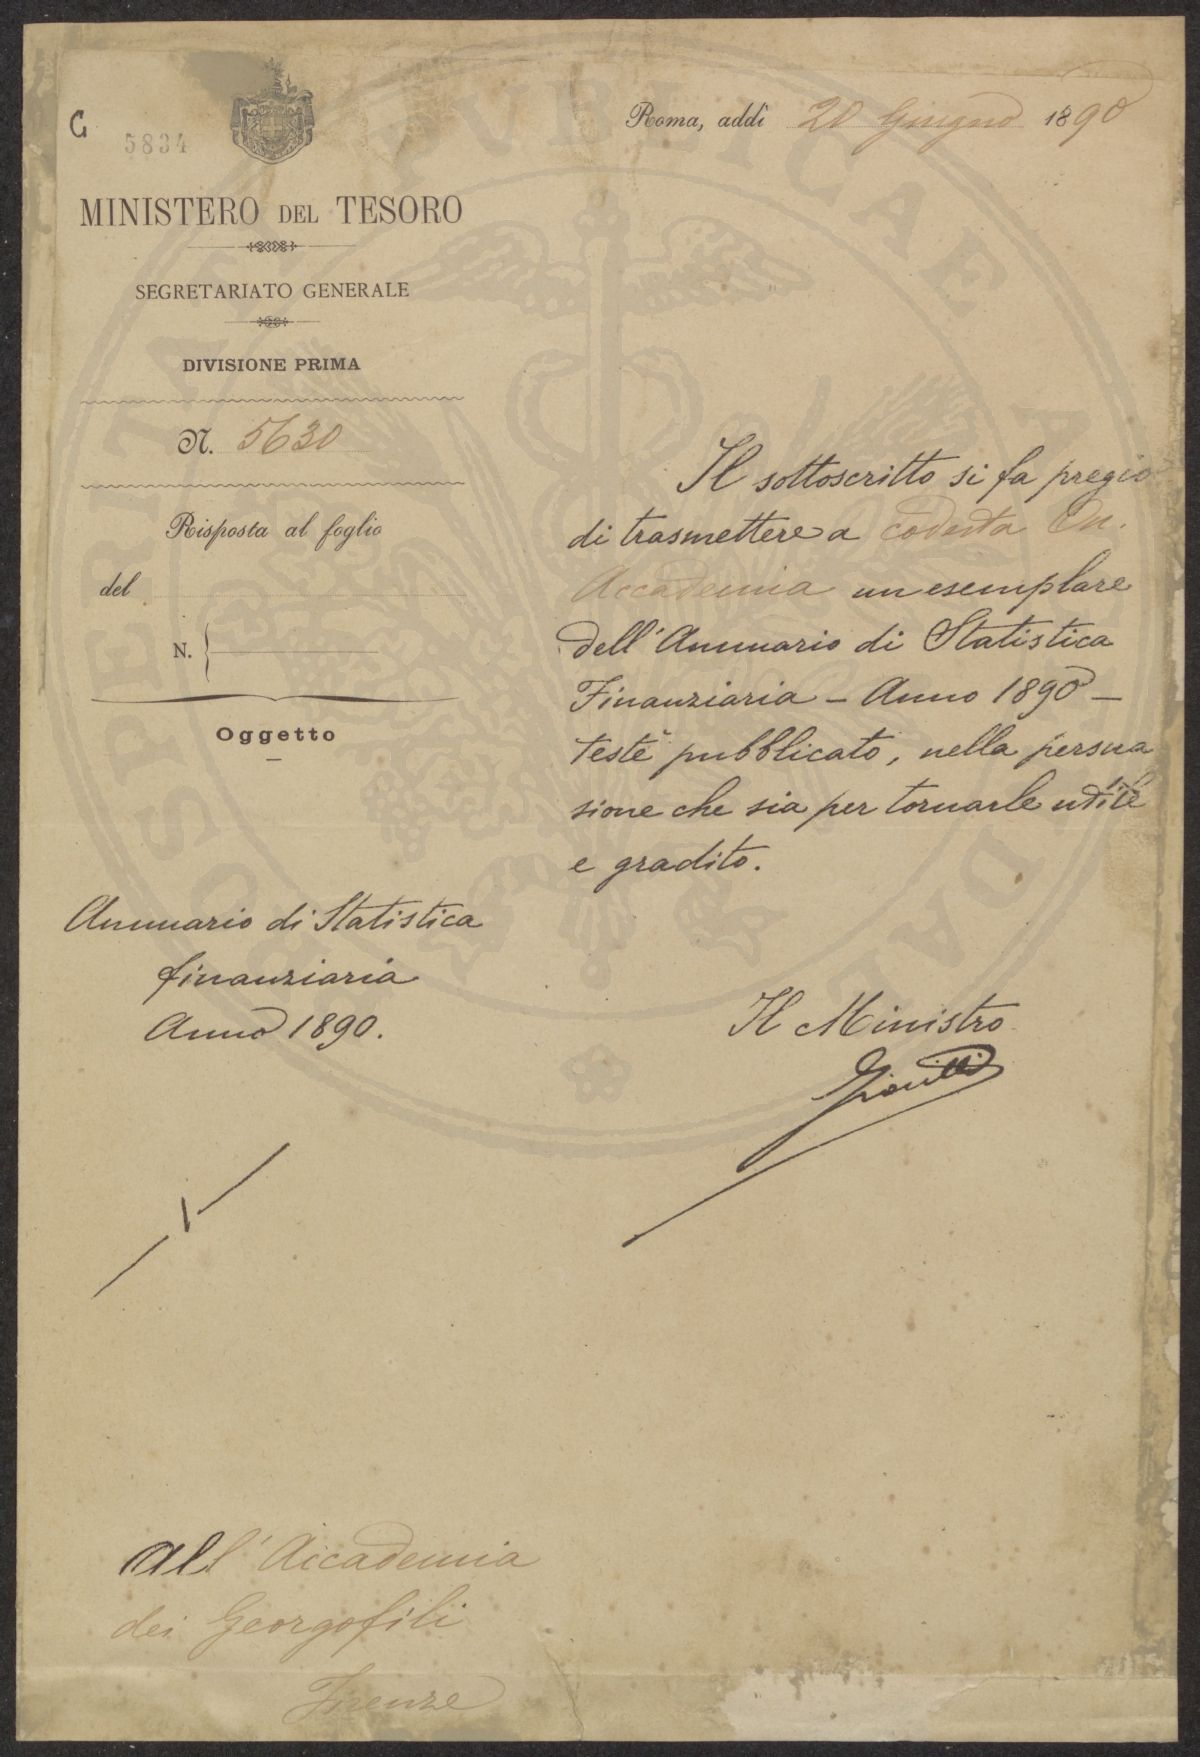 C
5834
Roma, addì 20 Giugno 1890
MINISTERO DEL TESORO
SEGRETARIATO GENERALE
DIVISIONE PRIMA
N. 5630
Risposta al foglio
del
N.
Oggetto
Annuario di Statistica
finanziaria
Anno 1890.
Il sottoscritto si fa pregio
di trasmettere a codesta On.
Accademia un esemplare
dell'Annuario di Statistica
Finanziaria – Anno 1890 –
testè pubblicato, nella persua
sione che sia per tornarle utile
e gradito.
Il Ministro
Giolitti
All'Accademia
dei Georgofili
Firenze